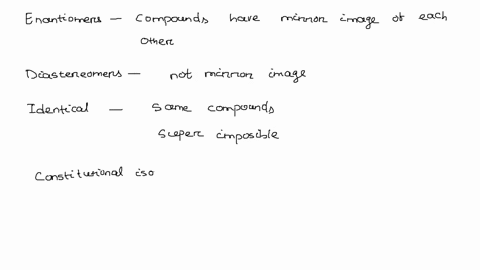 Enantiomers — Compounds have mirror image of each
other
Diastereomers — not mirror image
Identical — Same compounds
Super imposible
Constitutional iso